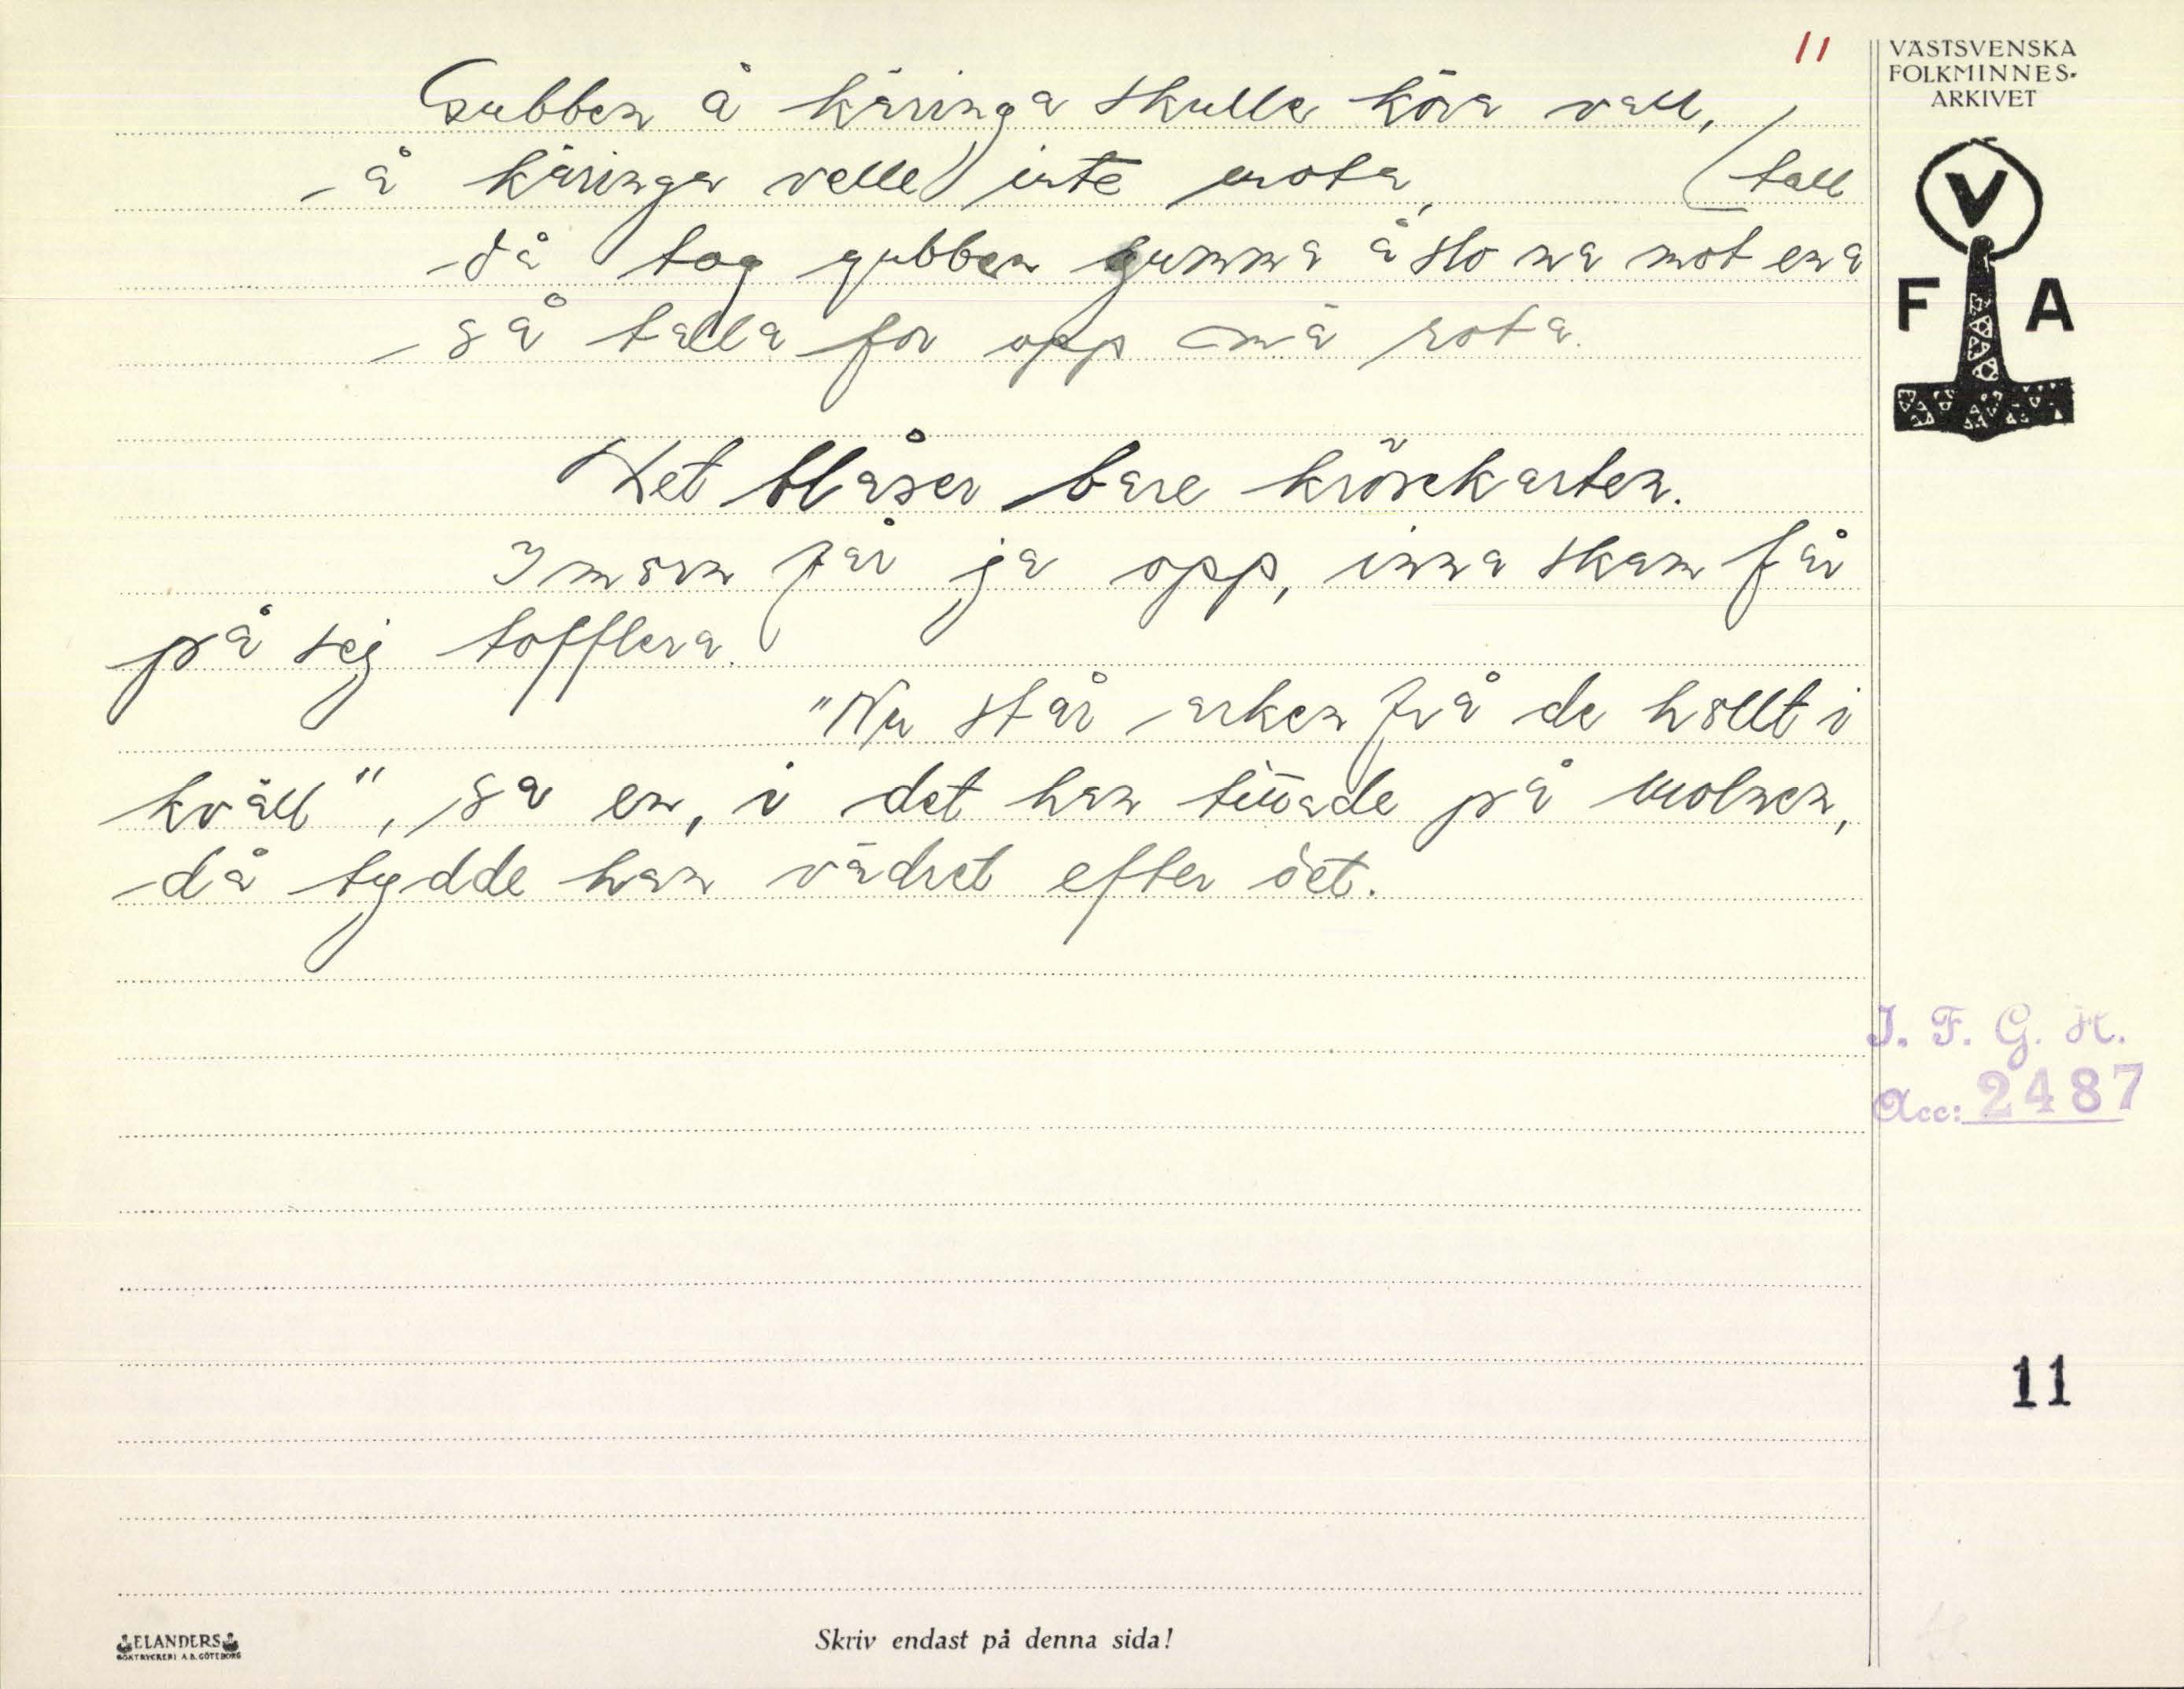 11
VÄSTSVENSKA
FOLKMINNES-
ARKIVET
Gubben å käringa skulle köra vall,
å käringa velle inte mota,
(tall
då tog gubben gumma å slo na mot ena
så talla for opp mä rota.
V
F A
Det blåser bare krösekarten.
I morn får ja opp, inna skam får
på sej tofflera.
"Nu står arken frå de hållt i
kväll", sa en, i det han tittade på molnen,
då tydde han vädret efter det.
I. F. G. H.
Acc: 2487
11
ELANDERS
BOKTRYCKERI A.B. GÖTEBORG
Skriv endast på denna sida!